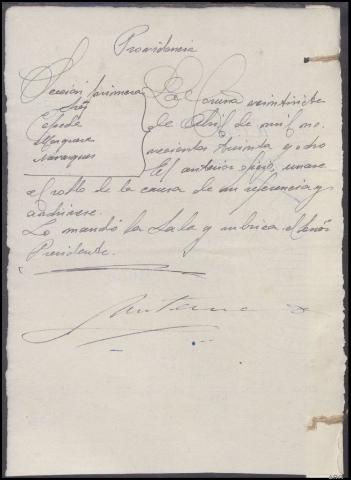 Providencia
Sección primera
Srs
Cepeda
Marquez
La Coruña veintisiete
de Abril de mil no
vecientos treinta y ocho
El anterior oficio, unase
al rollo de la causa de su referencia y
Lo mandó la Sala y rubrica el Señor
Presidente.